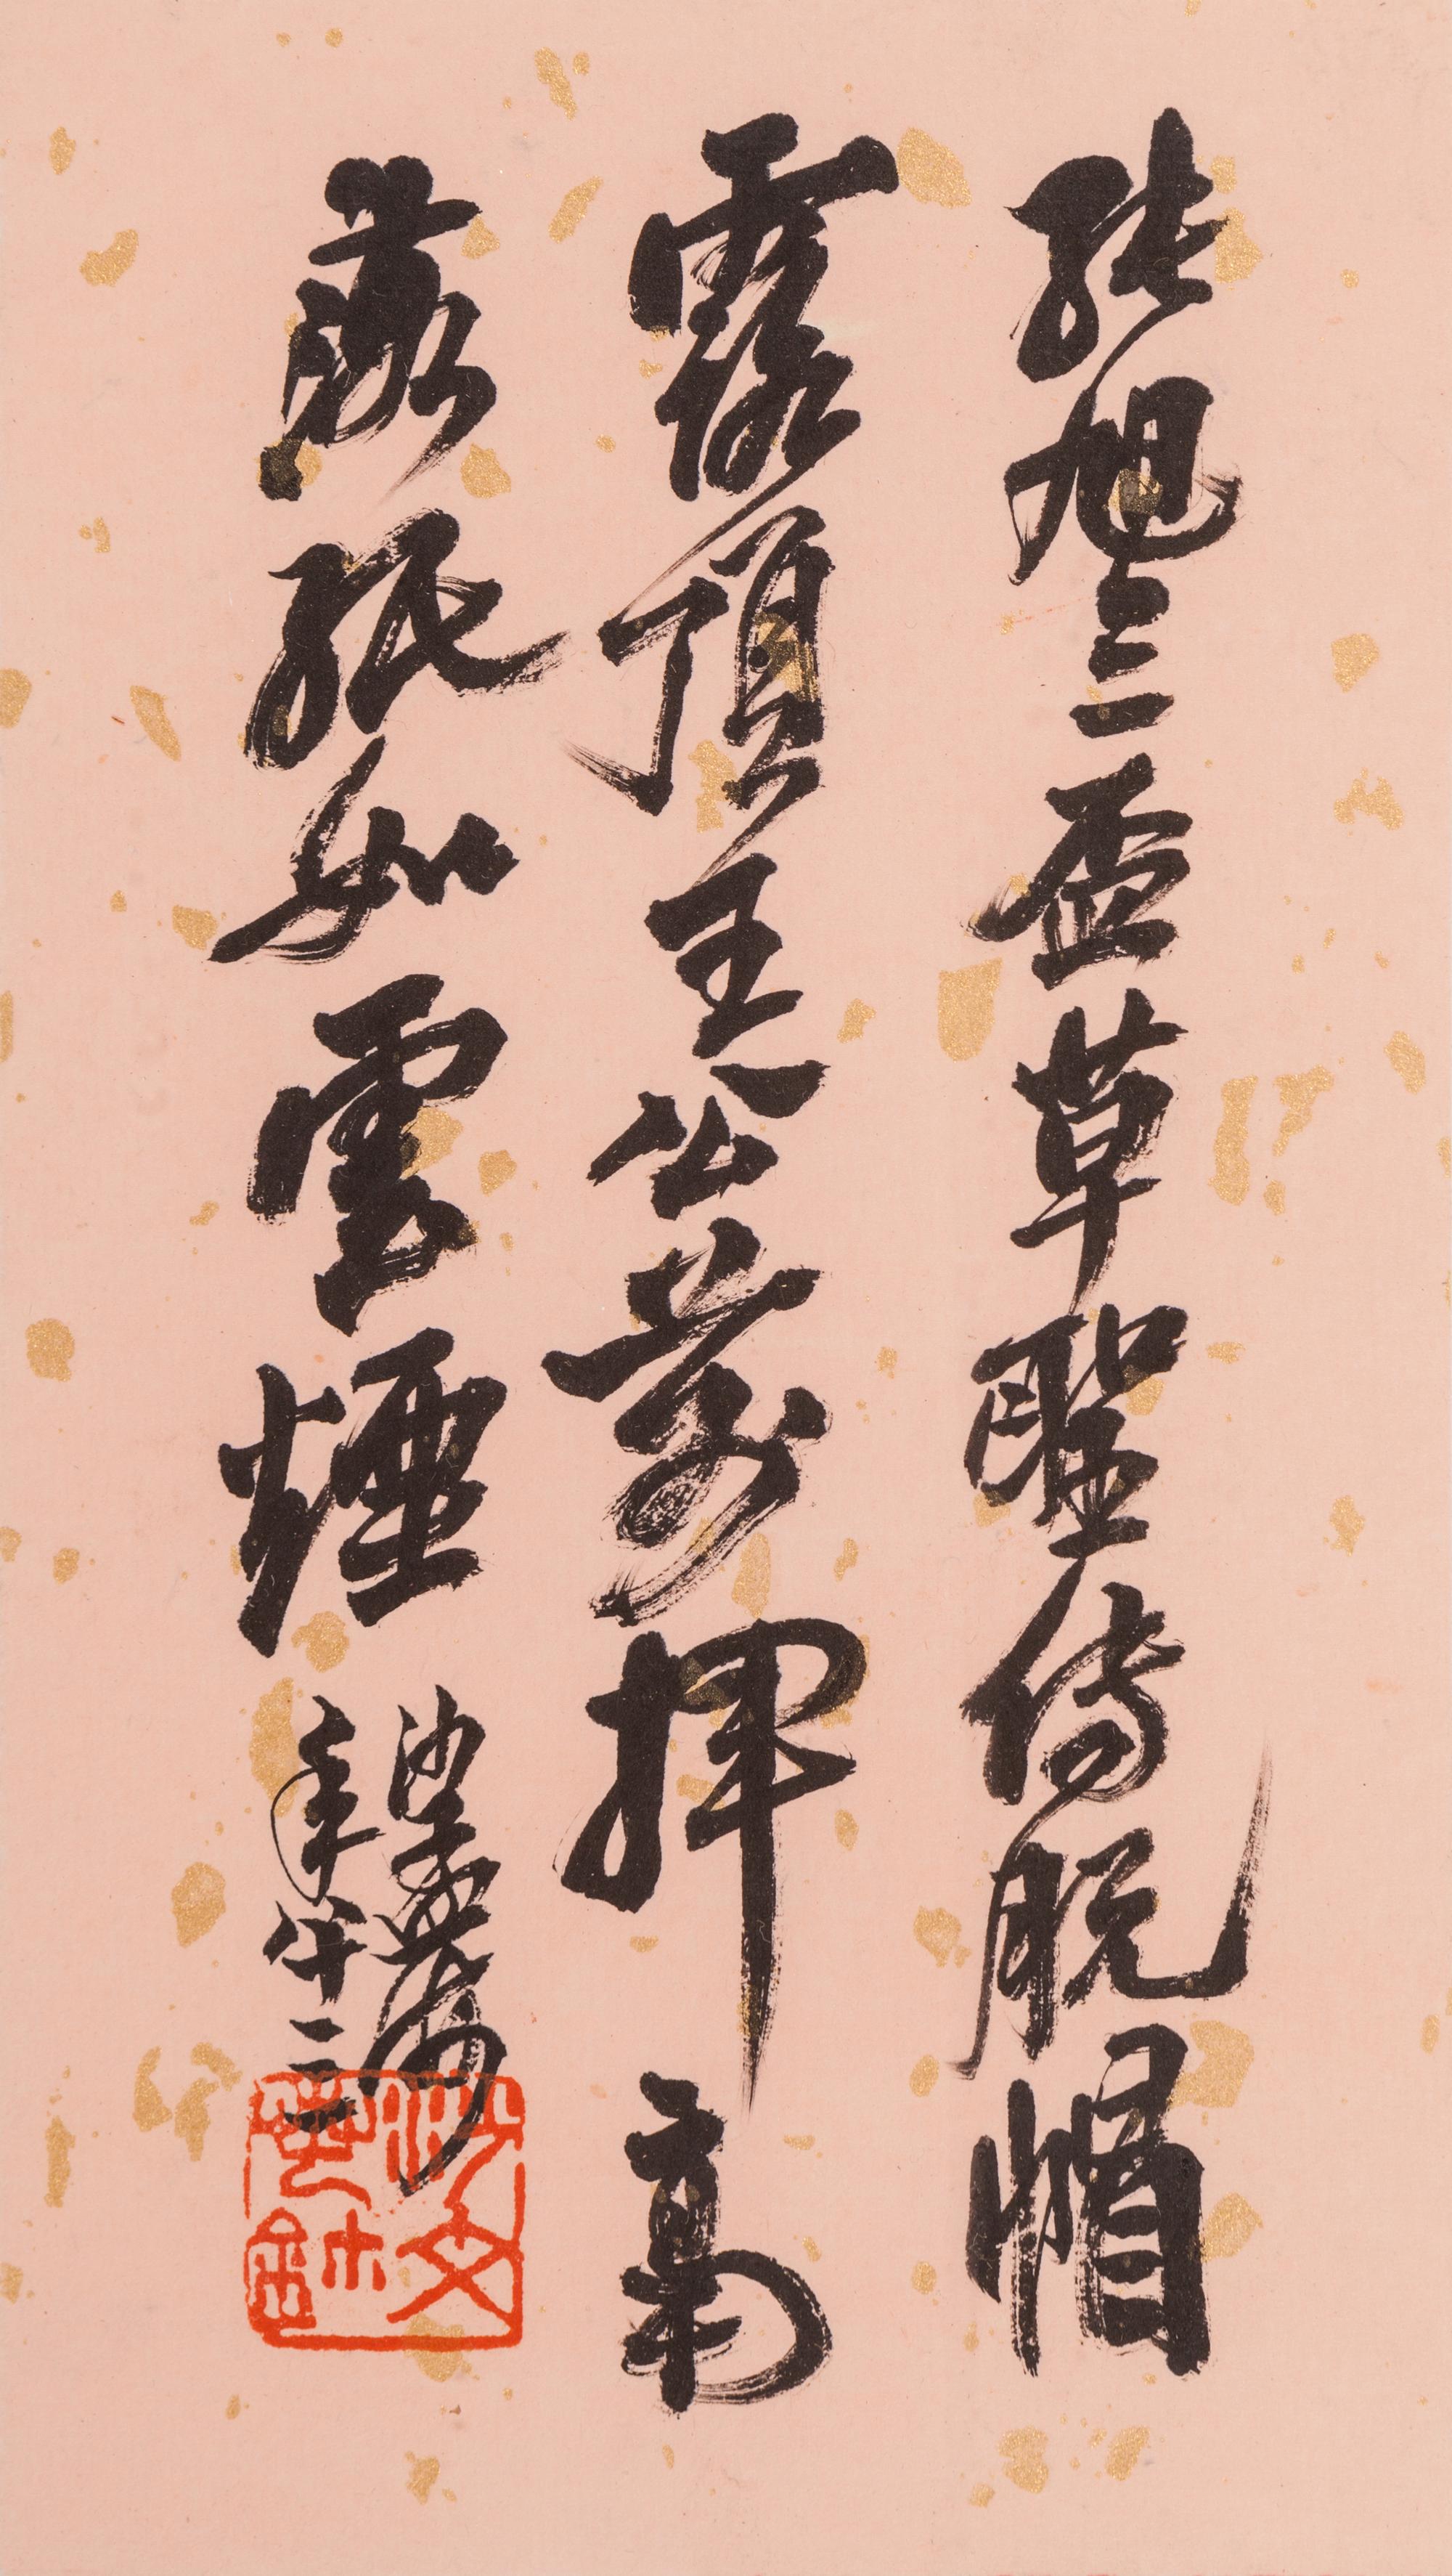 張旭三盃草聖傳脫帽
露頂王公前揮毫
落紙如雲煙
沙孟海
年八十三
沙文若鉨